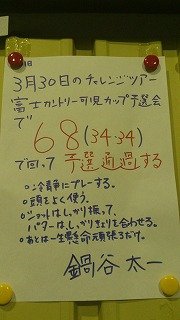 3月30日のチャレンジツアー
富士カントリー可児カップ予選会
で
68(34.34)
で回って 予選通過する
○冷静にプレーする。
○頭をよく使う。
○ショットはしっかり振って、
パターはしっかりきょりを合わせる。
○あとは一生懸命頑張るだけ。
鍋谷太一